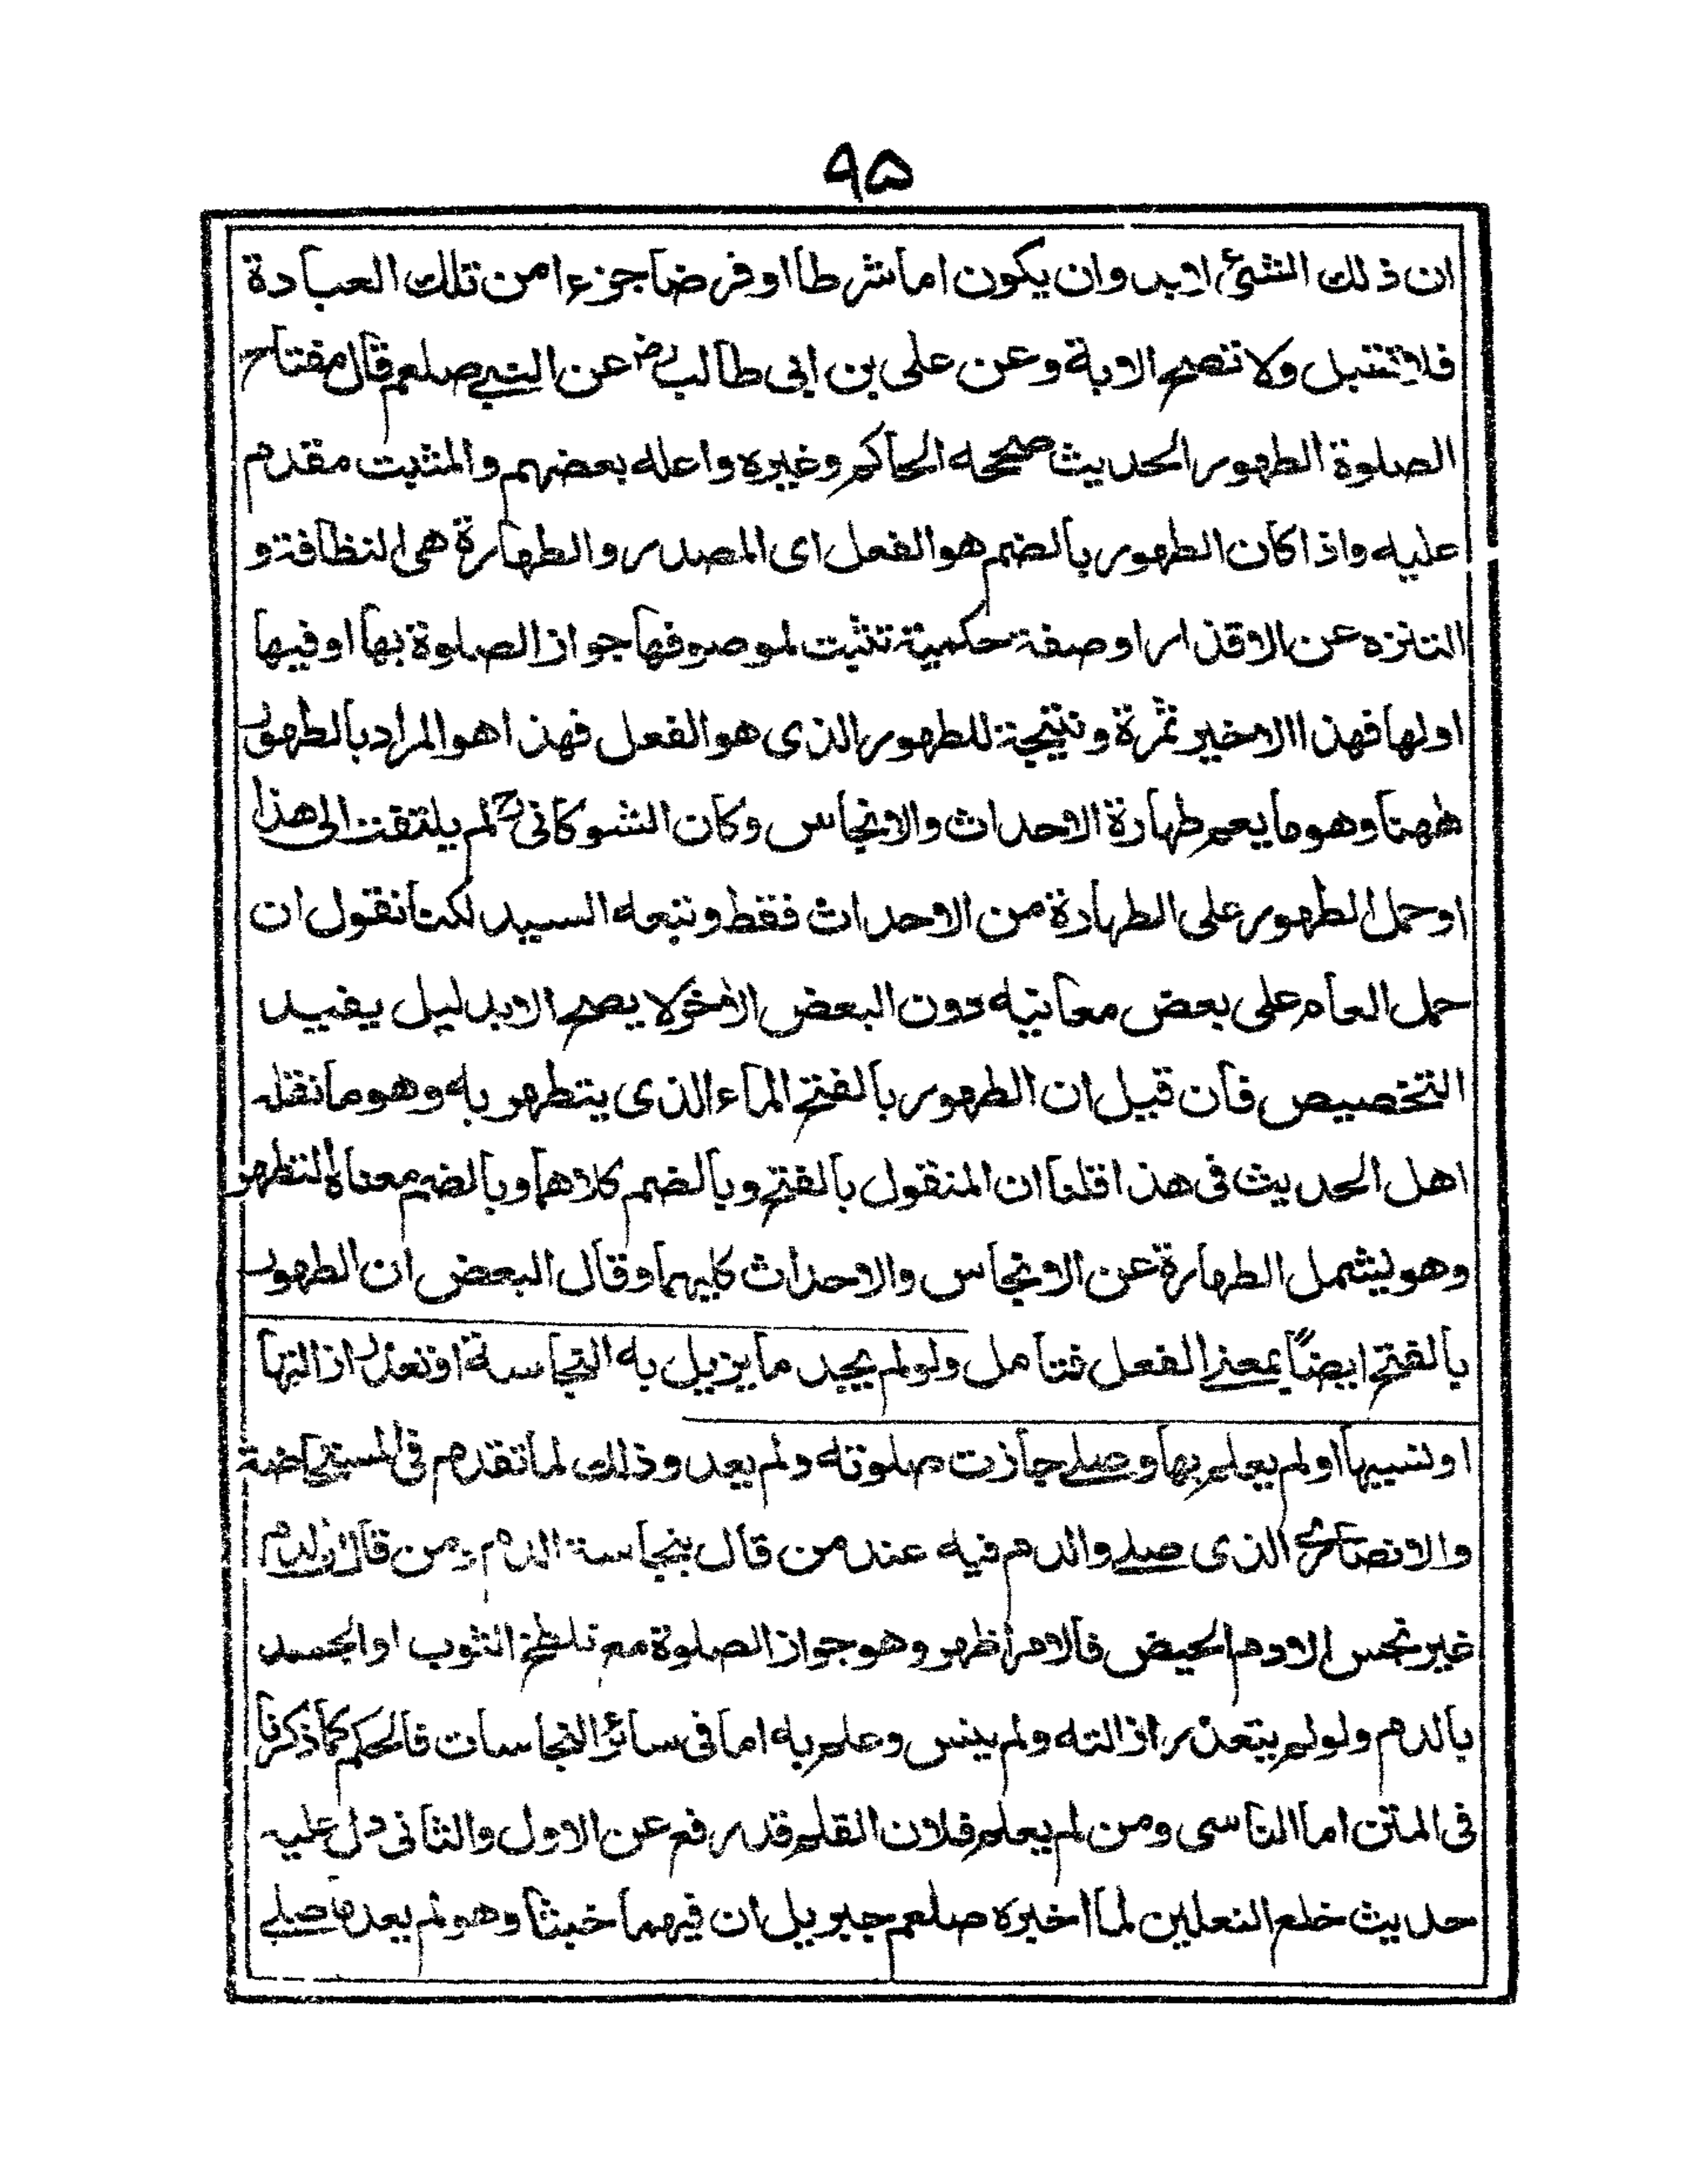 ٩٥
ان ذلك الشئ لابد وان يكون اما شرطا او فرضا جزءا من تلك العبادة
فلا تقبل ولا تصح الا به وعن على بن ابى طالب رض عن النبي صلعم قال مفتاح
الصلوة الطهور الحديث صححه الحاكم وغيره واعله بعضهم والمثبت مقدم
عليه واذا كان الطهور بالضم هو الفعل اى المصدر والطهارة هى النظافة و
التنزه عن الاقذار او صفة حكمية تثبت لموصوفها جواز الصلوة بها او فيها
او لها فهذا الاخير ثمرة ونتيجة للطهور الذى هو الفعل فهذا هو المراد بالطهور
ههنا وهو ما يعم طهارة الاحداث والانجاس وكان الشوكانى رح لم يلتفت الى هذا
او حمل الطهور على الطهارة من الاحداث فقط وتبعه السيد لكنا نقول ان
حمل العام على بعض معانيه دون البعض الاخر لا يصح الا بدليل يفيد
التخصيص فان قيل ان الطهور بالفتح الماء الذى يتطهر به وهو ما نقله
اهل الحديث فى هذا قلنا ان المنقول بالفتح وبالضم كلاهما وبالضم معناه التطهر
وهو يشمل الطهارة عن الانجاس والاحداث كليهما وقال البعض ان الطهور
بالفتح ايضاً بمعنى الفعل فتامل ولو لم يجد ما يزيل به النجاسة او تعذر ازالتها
او نسيها او لم يعلم بها وصلى جازت صلوته ولم يعد وذلك لما تقدم فى المستحاضة
والانصارى الذى صلى والدم فيه عند من قال بنجاسة الدم ومن قال ان الدم
غير نجس الا دم الحيض فالامر اظهر وهو جواز الصلوة مع تلطخ الثوب او الجسد
بالدم ولو لم يتعذر ازالته ولم ينس وعلم به اما فى سائر النجاسات فالحكم كما ذكرنا
فى المتن اما الناسى ومن لم يعلم فلان القلم قد رفع عن الاول والثانى دل عليه
حديث خلع النعلين لما اخبره صلعم جبريل ان فيهما خبثا وهو لم يعد ما صلى